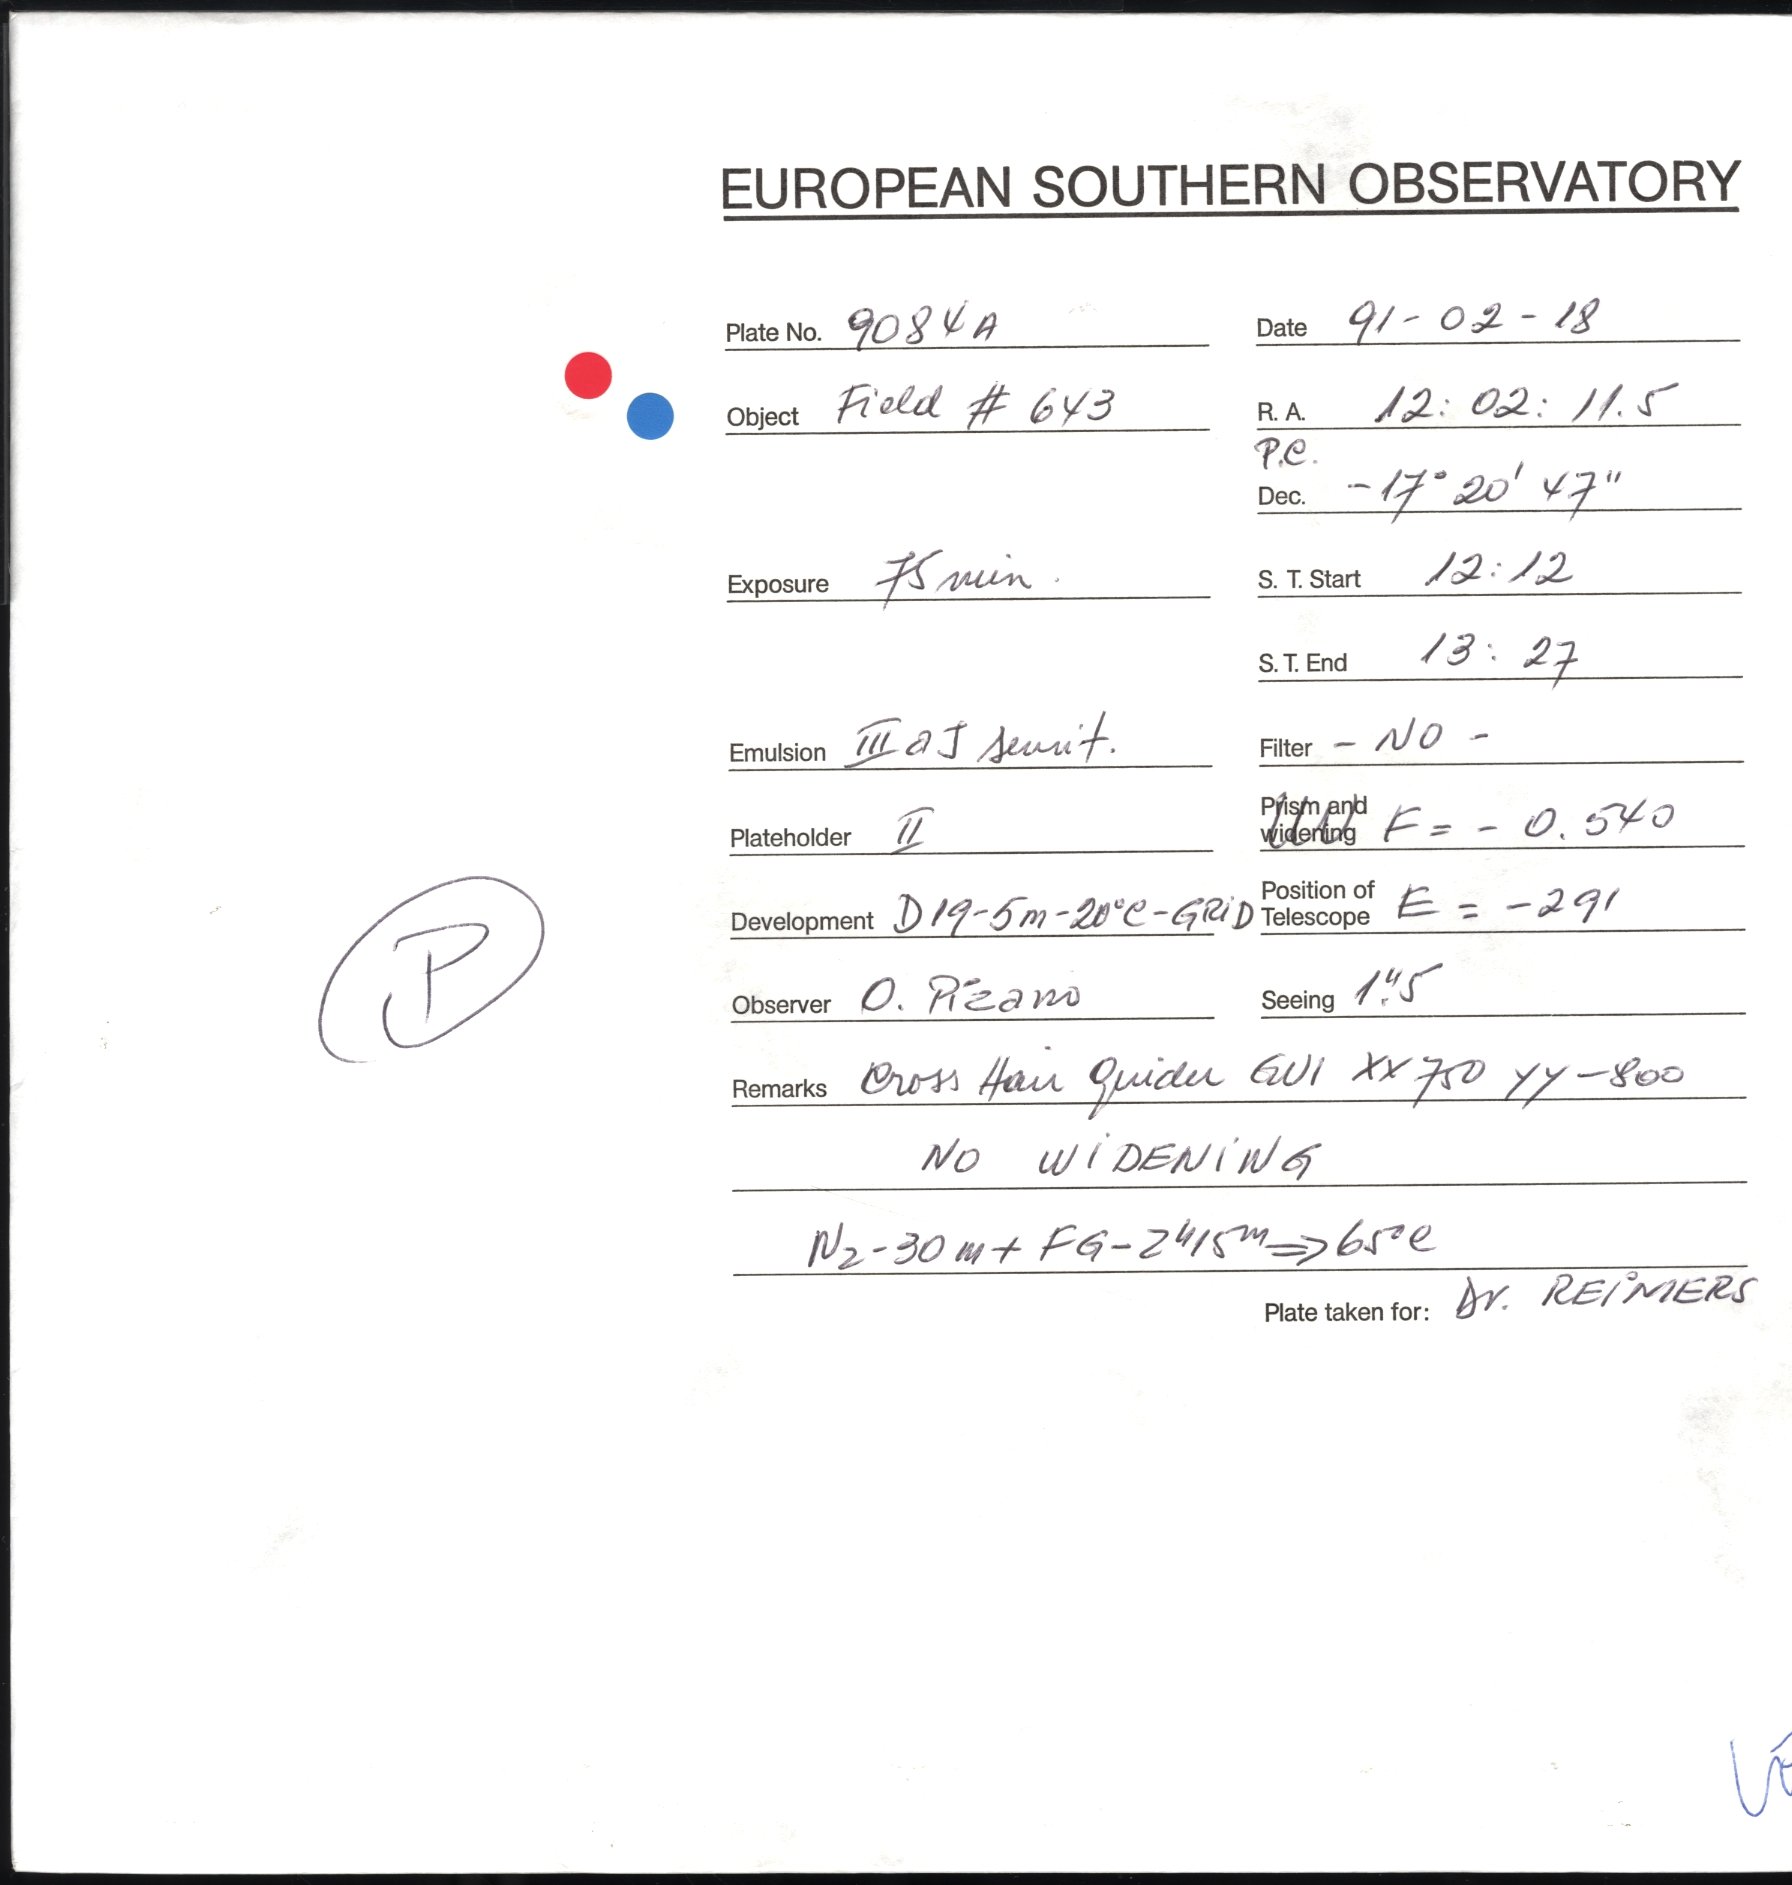 EUROPEAN SOUTHERN OBSERVATORY
Plate No. 9084A Date 91-02-18
Object Field # 643 R. A. 12: 02: 11.5
P.C.
Dec. -17° 20' 47"
Exposure 75 min. S. T. Start 12:12
S. T. End 13: 27
Emulsion III a J sensit. Filter - NO -
Plateholder II Prism and widening F = - 0.540
Development D19-5m-20°C-GRiD Position of Telescope E = -291
Observer O. Pizarro Seeing 1".5
Remarks Cross Hair Guider GUI XX 750 YY -800
NO WiDENiNG
N2-30m+ FG-2h15m=>65°C
Plate taken for: Dr. REiMERS
P